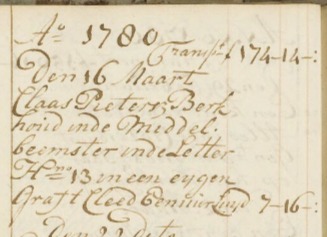 Ao 1780
Transpt f 174-14-:
Den 16 Maart
Claas Pietersz Berk
houd inde Middel:
beemster inde Letter
H no 13 in een eygen
graft Cleed Een uur Luyd 7-16-:
Den 22 dito